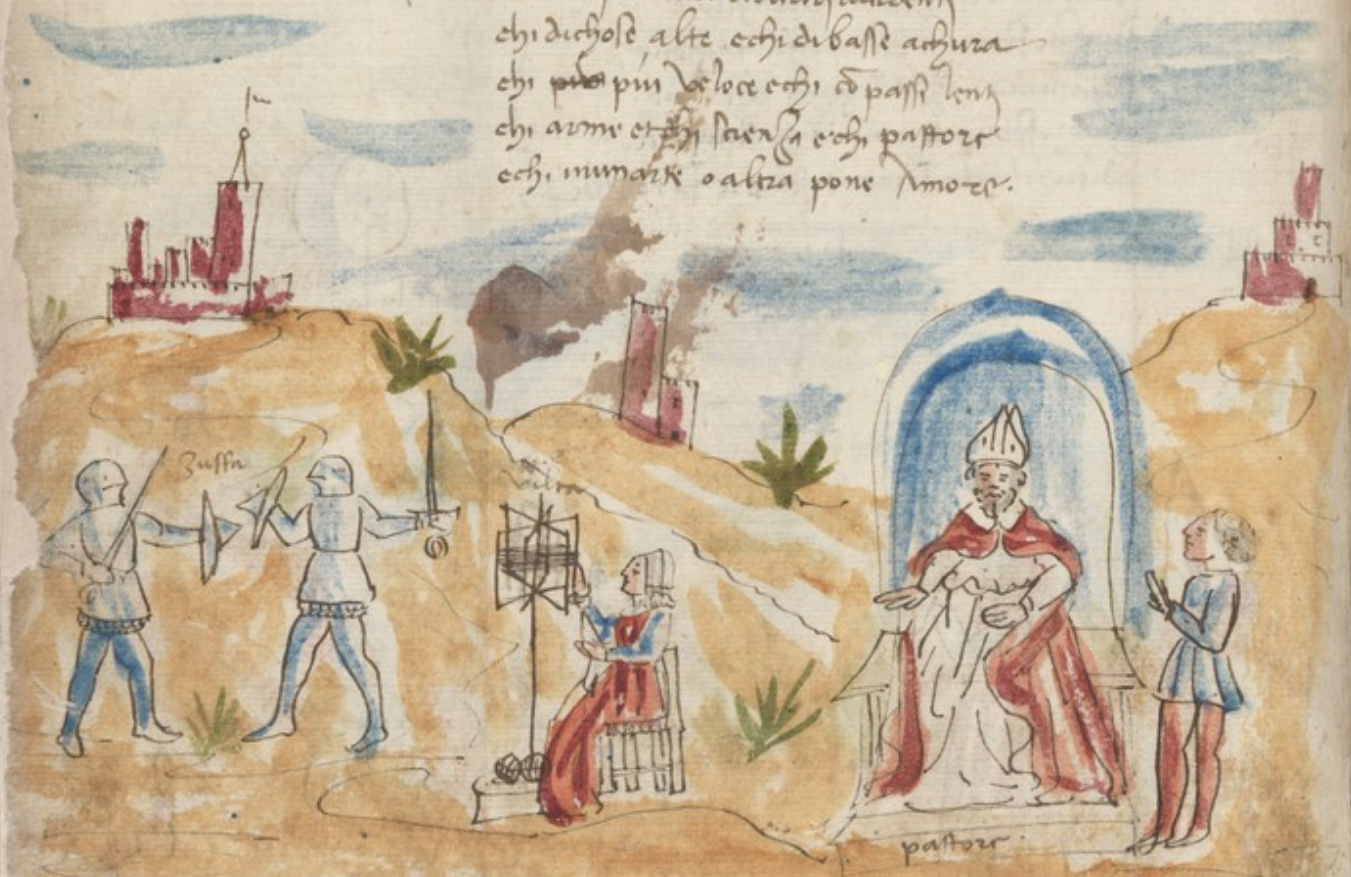 chi dichose alte echi dibasse achura
chi piu veloce echi cō passi lenti
chi arme et chi scienza echi pastore
echi inunarte o altra pone Amore.
zuffa
pastore.